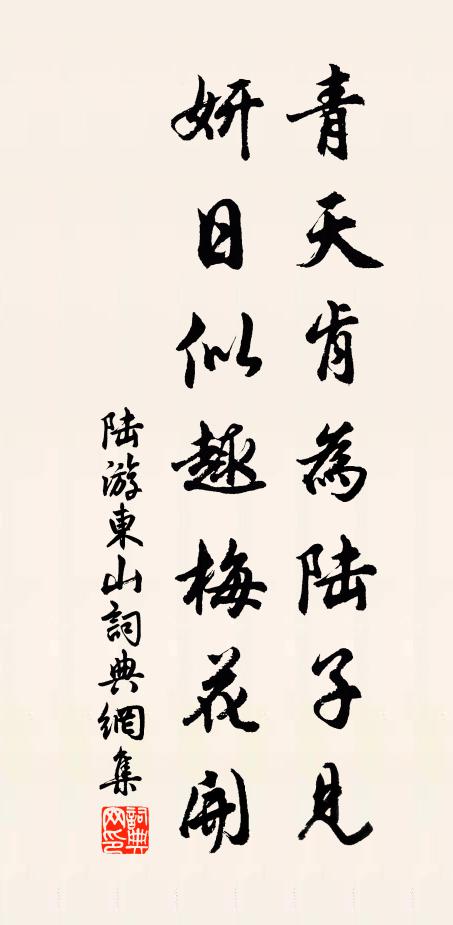 青天肯為陸子見
妍日似趣梅花開
陸游東山詞典網集
詞典网印